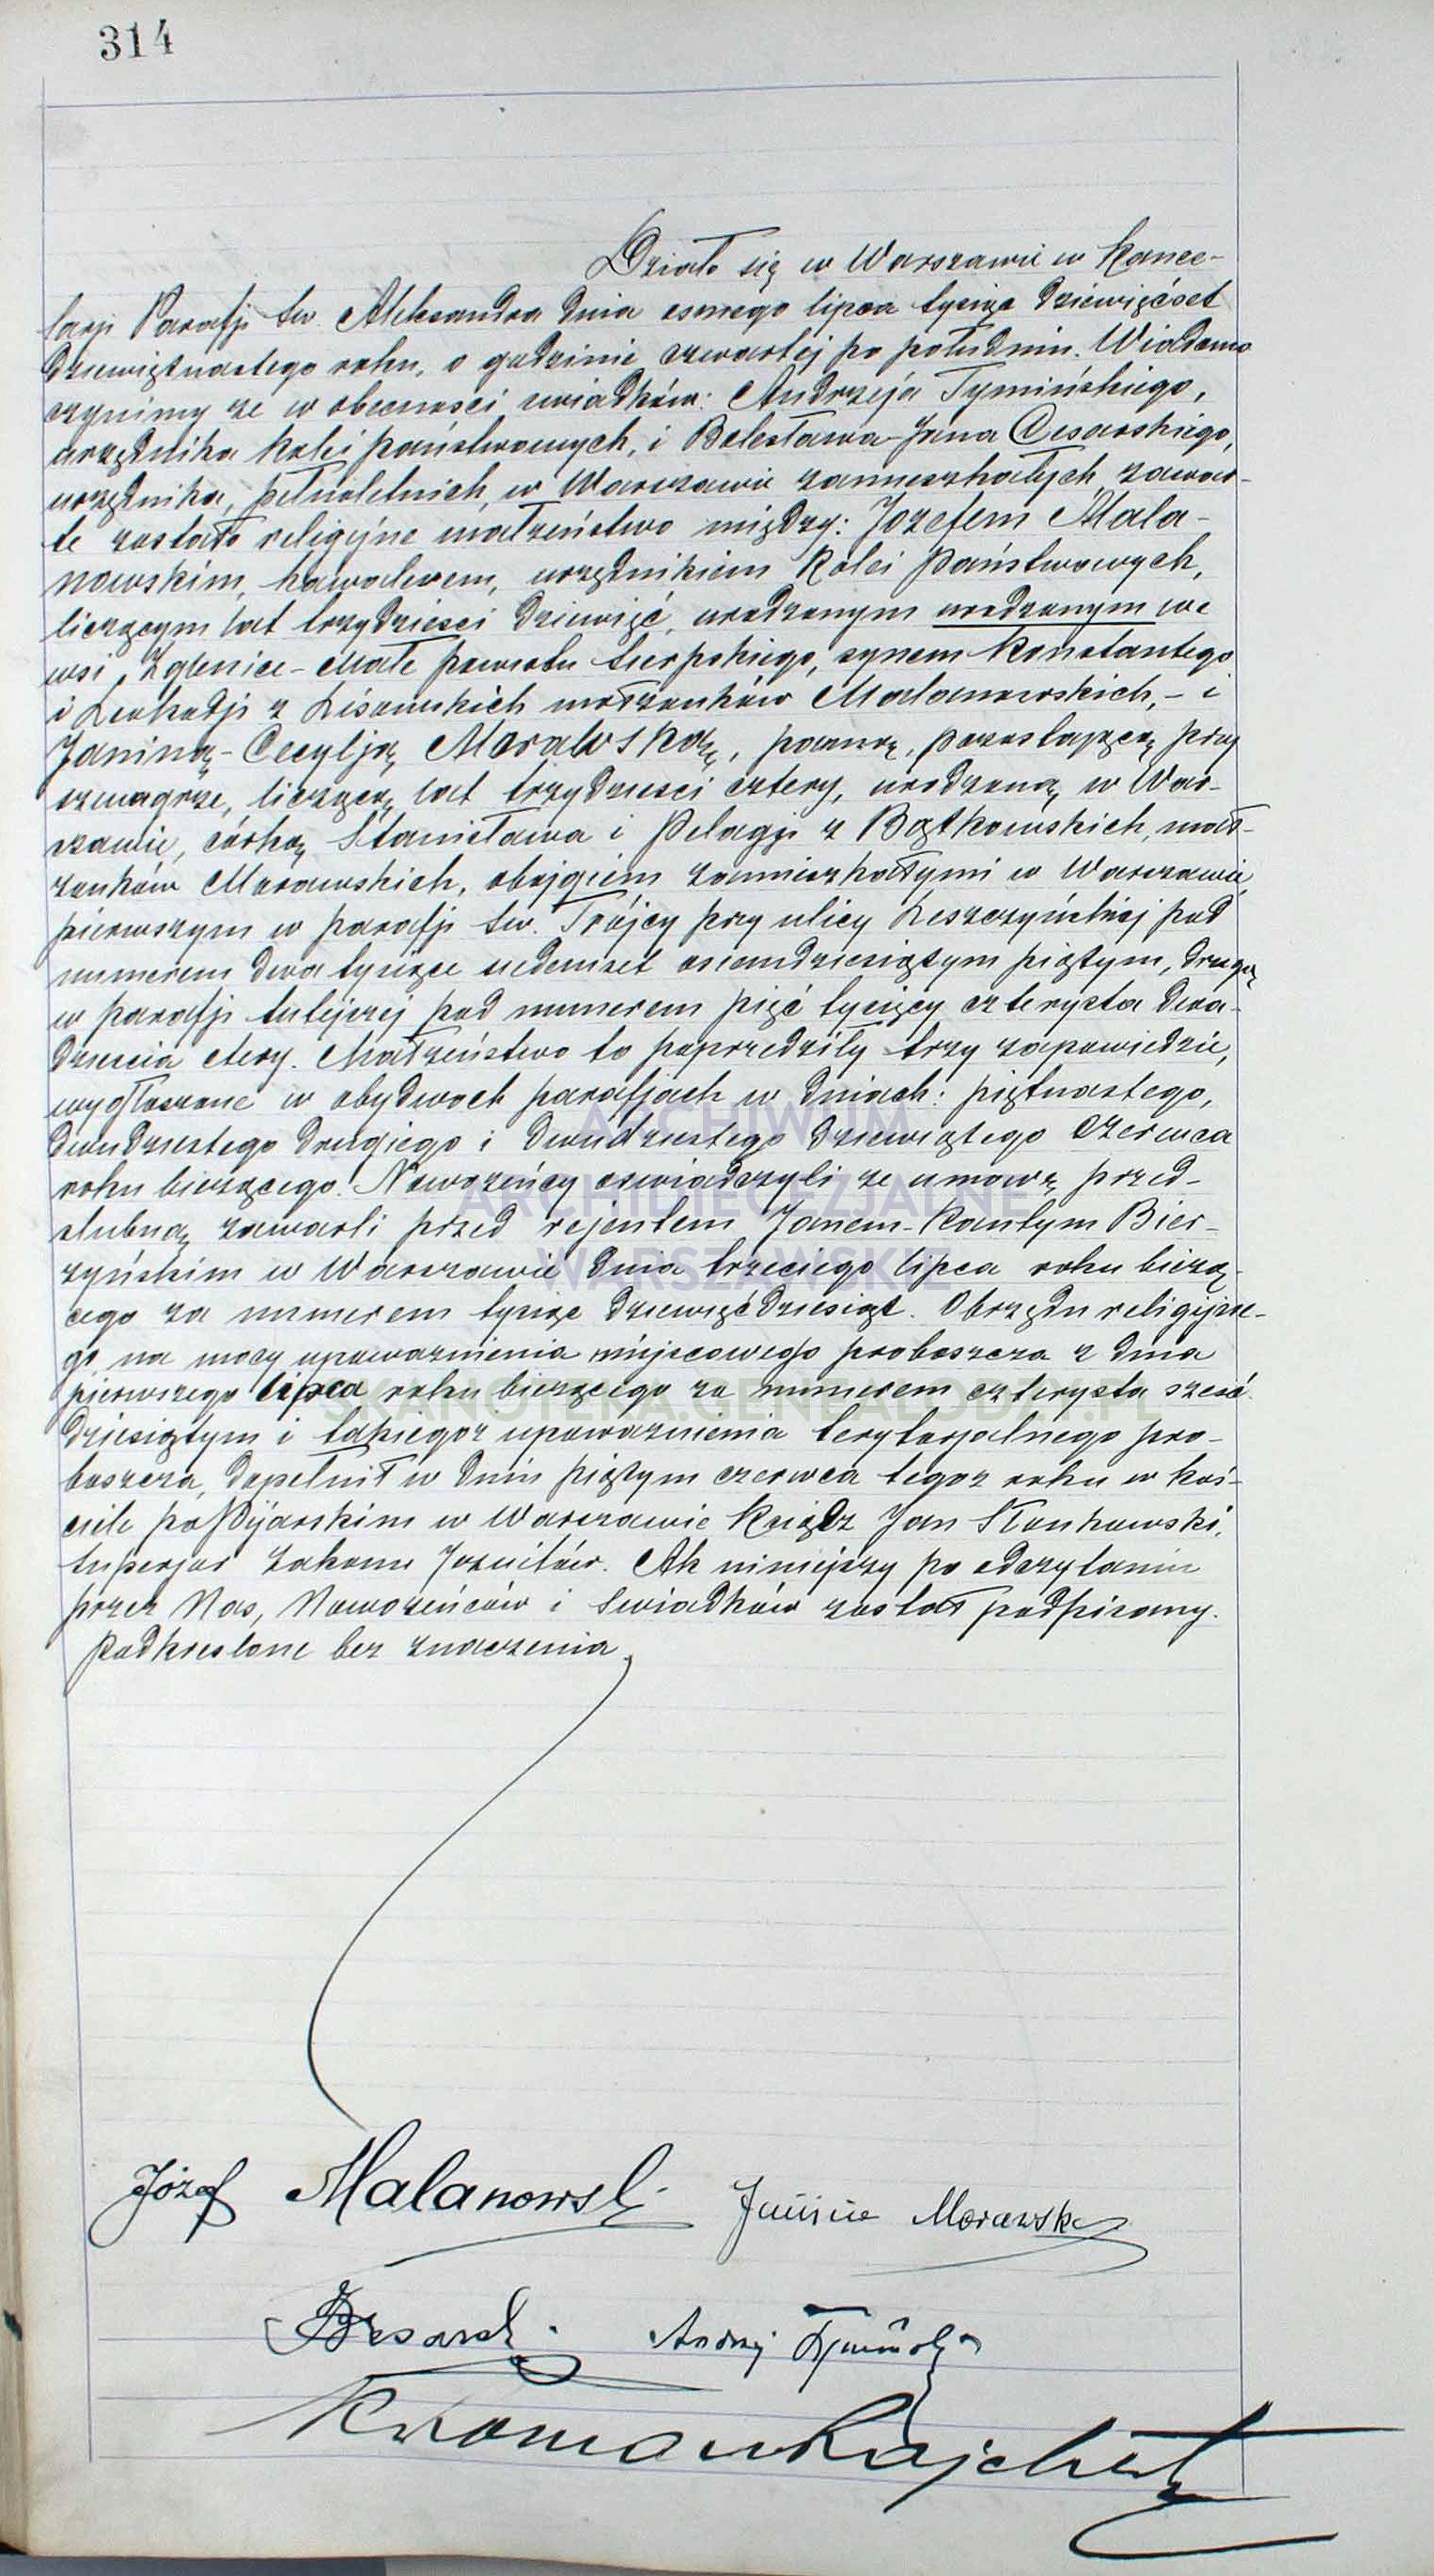 314
Działo się w Warszawie w Kance-
larji Parafji św. Aleksandra dnia ósmego lipca tysiąc dziewięćset
dziewiętnastego roku, o godzinie czwartej po południu. Wiadomo
czynimy że w obecności świadków: Andrzeja Tymińskiego,
urzędnika kolei państwowych, i Bolesława-Jana Cesarskiego,
urzędnika, pełnoletnich, w Warszawie zamieszkałych, zawar-
te zostało religijne małżeństwo między: Józefem Mala-
nowskim, kawalerem, urzędnikiem Kolei Państwowych,
liczącym lat trzydzieści dziewięć, urodzonym urodzonym we
wsi Zglenice-Małe powiatu sierpskiego, synem Konstantego
i Leokadji z Lisowskich małżonków Malanowskich, - i
Janiną-Cecylją Morawską, panną, pozostającą przy
szwagrze, liczącą lat trzydzieści cztery, urodzoną w War-
szawie, córką Stanisława i Pelagji z Bątkowskich, mał-
żonków Morawskich, obojgiem zamieszkałymi w Warszawie,
pierwszym w parafji św. Trójcy przy ulicy Leszczyńskiej pod
numerem dwa tysiące siedemset osiemdziesiątym piątym, drugą
w parafji tutejszej pod numerem pięć tysięcy czterysta dwa-
dzieścia cztery. Małżeństwo to poprzedziły trzy zapowiedzie,
wygłoszone w obydwóch parafjach w dniach: piętnastego,
dwudziestego drugiego i dwudziestego dziewiątego czerwca
roku bieżącego. Nowożeńcy oświadczyli że umowę przed-
ślubną zawarli przed rejentem Janem-Kantym Bier-
zyńskim w Warszawie dnia trzeciego lipca roku bieżą-
cego za numerem tysiąc dziewięćdziesiąt. Obrzędu religijne-
go na mocy upoważnienia miejscowego proboszcza z dnia
pierwszego lipca roku bieżącego za numerem czterysta sześć-
dziesiątym i takiegoż upoważnienia terytorjalnego pro-
boszcza, dopełnił w dniu piątym czerwca tegoż roku w koś-
ciele poPijarskim w Warszawie Ksiądz Jan Rostworowski,
superjor Zakonu Jezuitów. Akt niniejszy po odczytaniu
przez Nas, Nowożeńców i świadków został podpisany.
Podkreślone bez znaczenia.
Józef Malanowski Janina Morawska
Andrzej Tymiński
ARCHIWUM
ARCHIDIECEZJALNE
WARSZAWSKIE
SKANOTEKA.GENEALODZY.PL